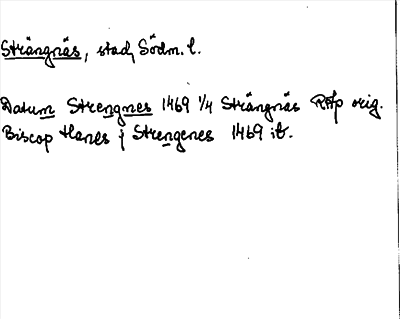 Strängnäs, stad, Södm. l.
Datum Strengnes 1469 1/4 Strängnäs RAp orig.
Biscop Hanes j Strengenes 1469 ib.